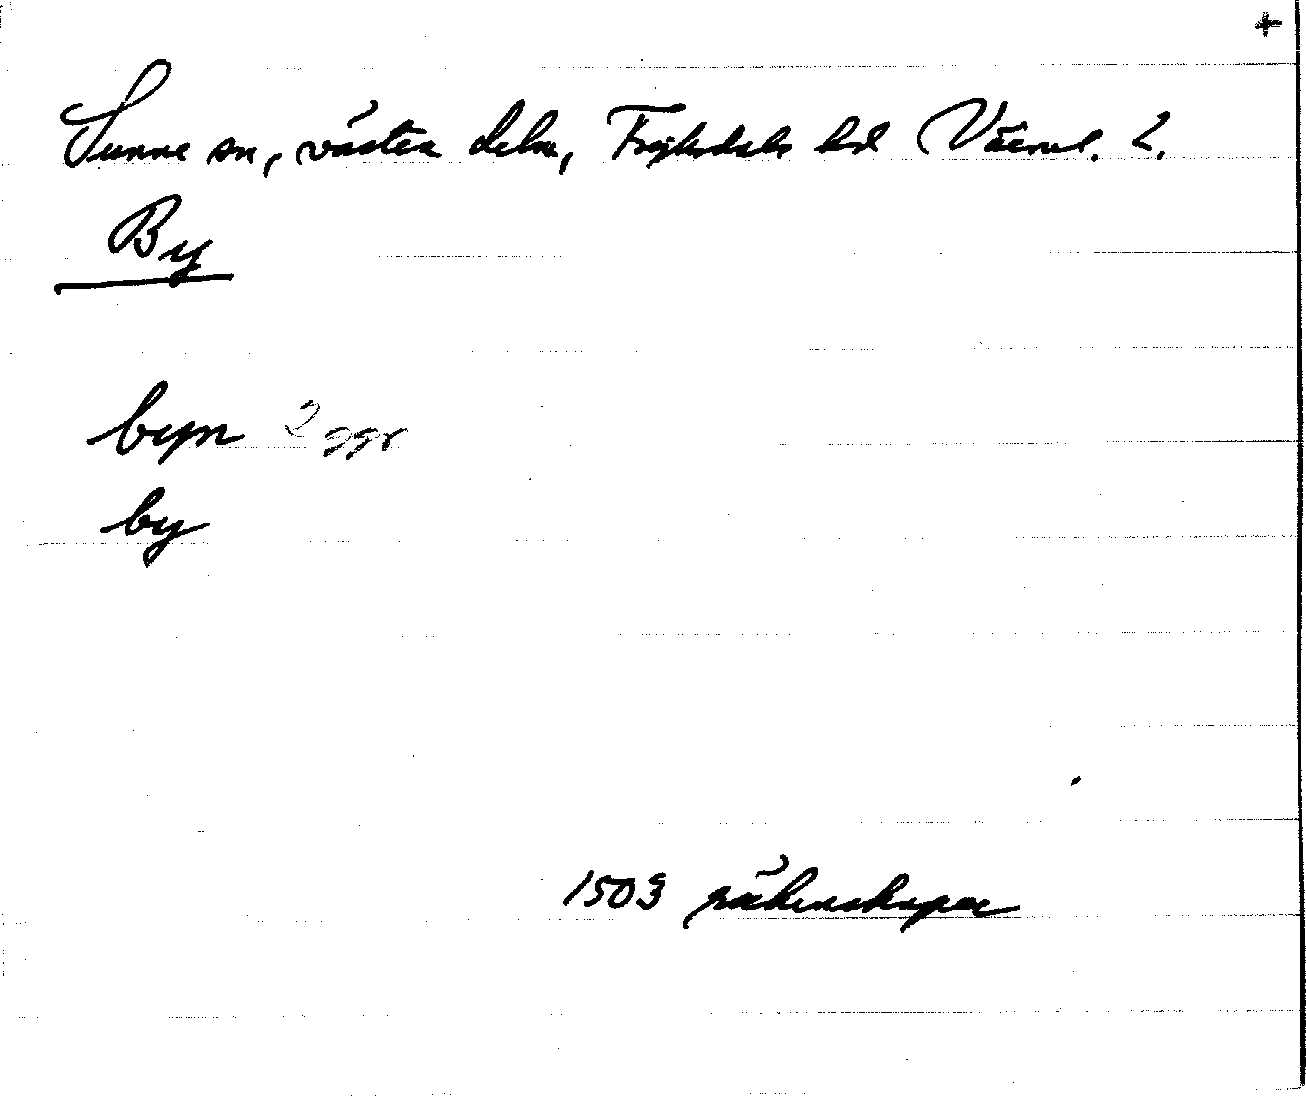 +
Sunne sn, västra delen, Fryksdals hd Värml. l.
By
byn 2 ggr
by
1503 räkenskaper